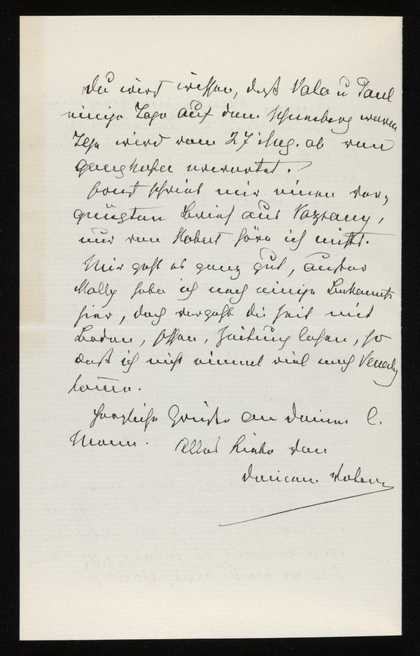 Du wirst wissen, daß Vala u Paul
einige Tage auf dem Schneeberg waren
wird vom 27 Aug. ab von
erwartet.
Ernst schrieb mir einen ver,
gnügten Brief aus
nur von Robert höre ich nichts.
Mir geht es ganz gut, außer
Mally habe ich noch einige Bekannte
hier, doch vergeht die Zeit mit
Baden, Essen, Zeitung lesen, so
daß ich nicht einmal viel nach Venedig
komme.
Herzliche Grüße an Deinen l.
Mann. Alles Liebe von
Deinem